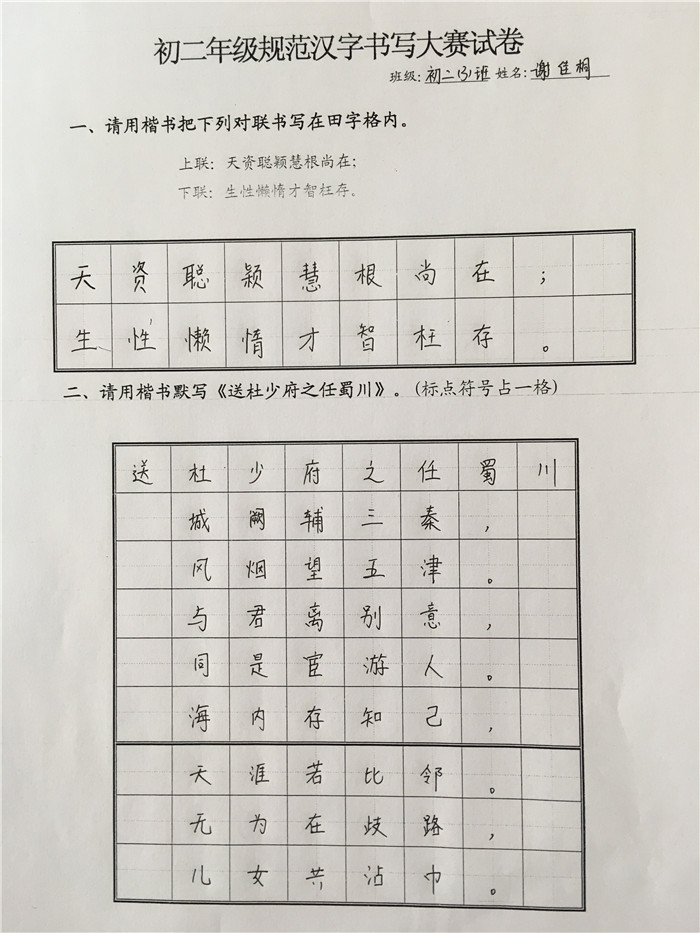 初二年级规范汉字书写大赛试卷
班级:初二(3)班 姓名:谢佳桐
一、请用楷书把下列对联书写在田字格内。
上联:天资聪颖慧根尚在;
下联:生性懒惰才智枉存。
天资聪颖慧根尚在;
生性懒惰才智枉存。
二、请用楷书默写《送杜少府之任蜀川》。(标点符号占一格)
送杜少府之任蜀川
城阙辅三秦,
风烟望五津。
与君离别意,
同是宦游人。
海内存知己,
天涯若比邻。
无为在歧路,
儿女共沾巾。